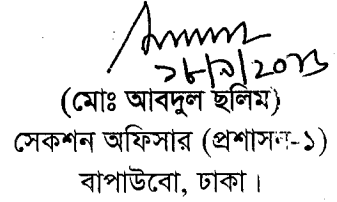 (মোঃ আবদুল ছলিম)
সেকশন অফিসার (প্রশাসন-১)
বাপাউবো, ঢাকা।